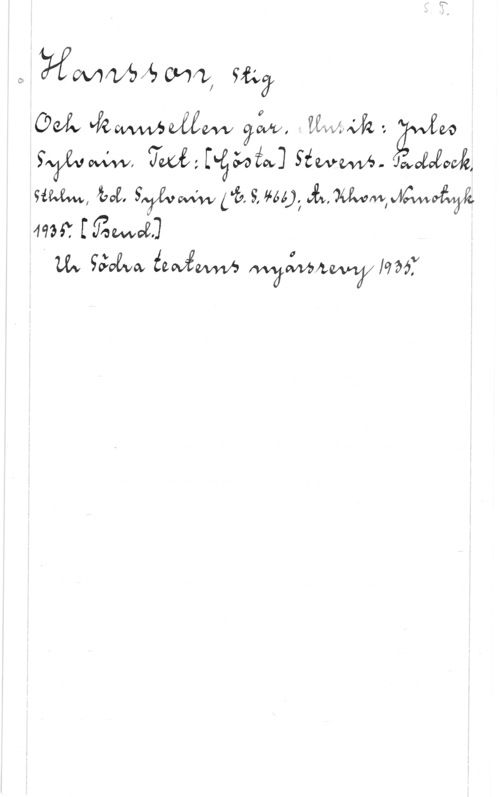 S. T.
Hansson, Stig
Och karusellen går. Musik: Jules
Sylvain. Text: [Gösta] Stevens - Paddock,
Sthlm, Ed. Sylvain (E. S. 466); tr. Khvn, Nornotryk
1935. [Pseud.]
Ur Södra teaterns nyårsrevy 1935.